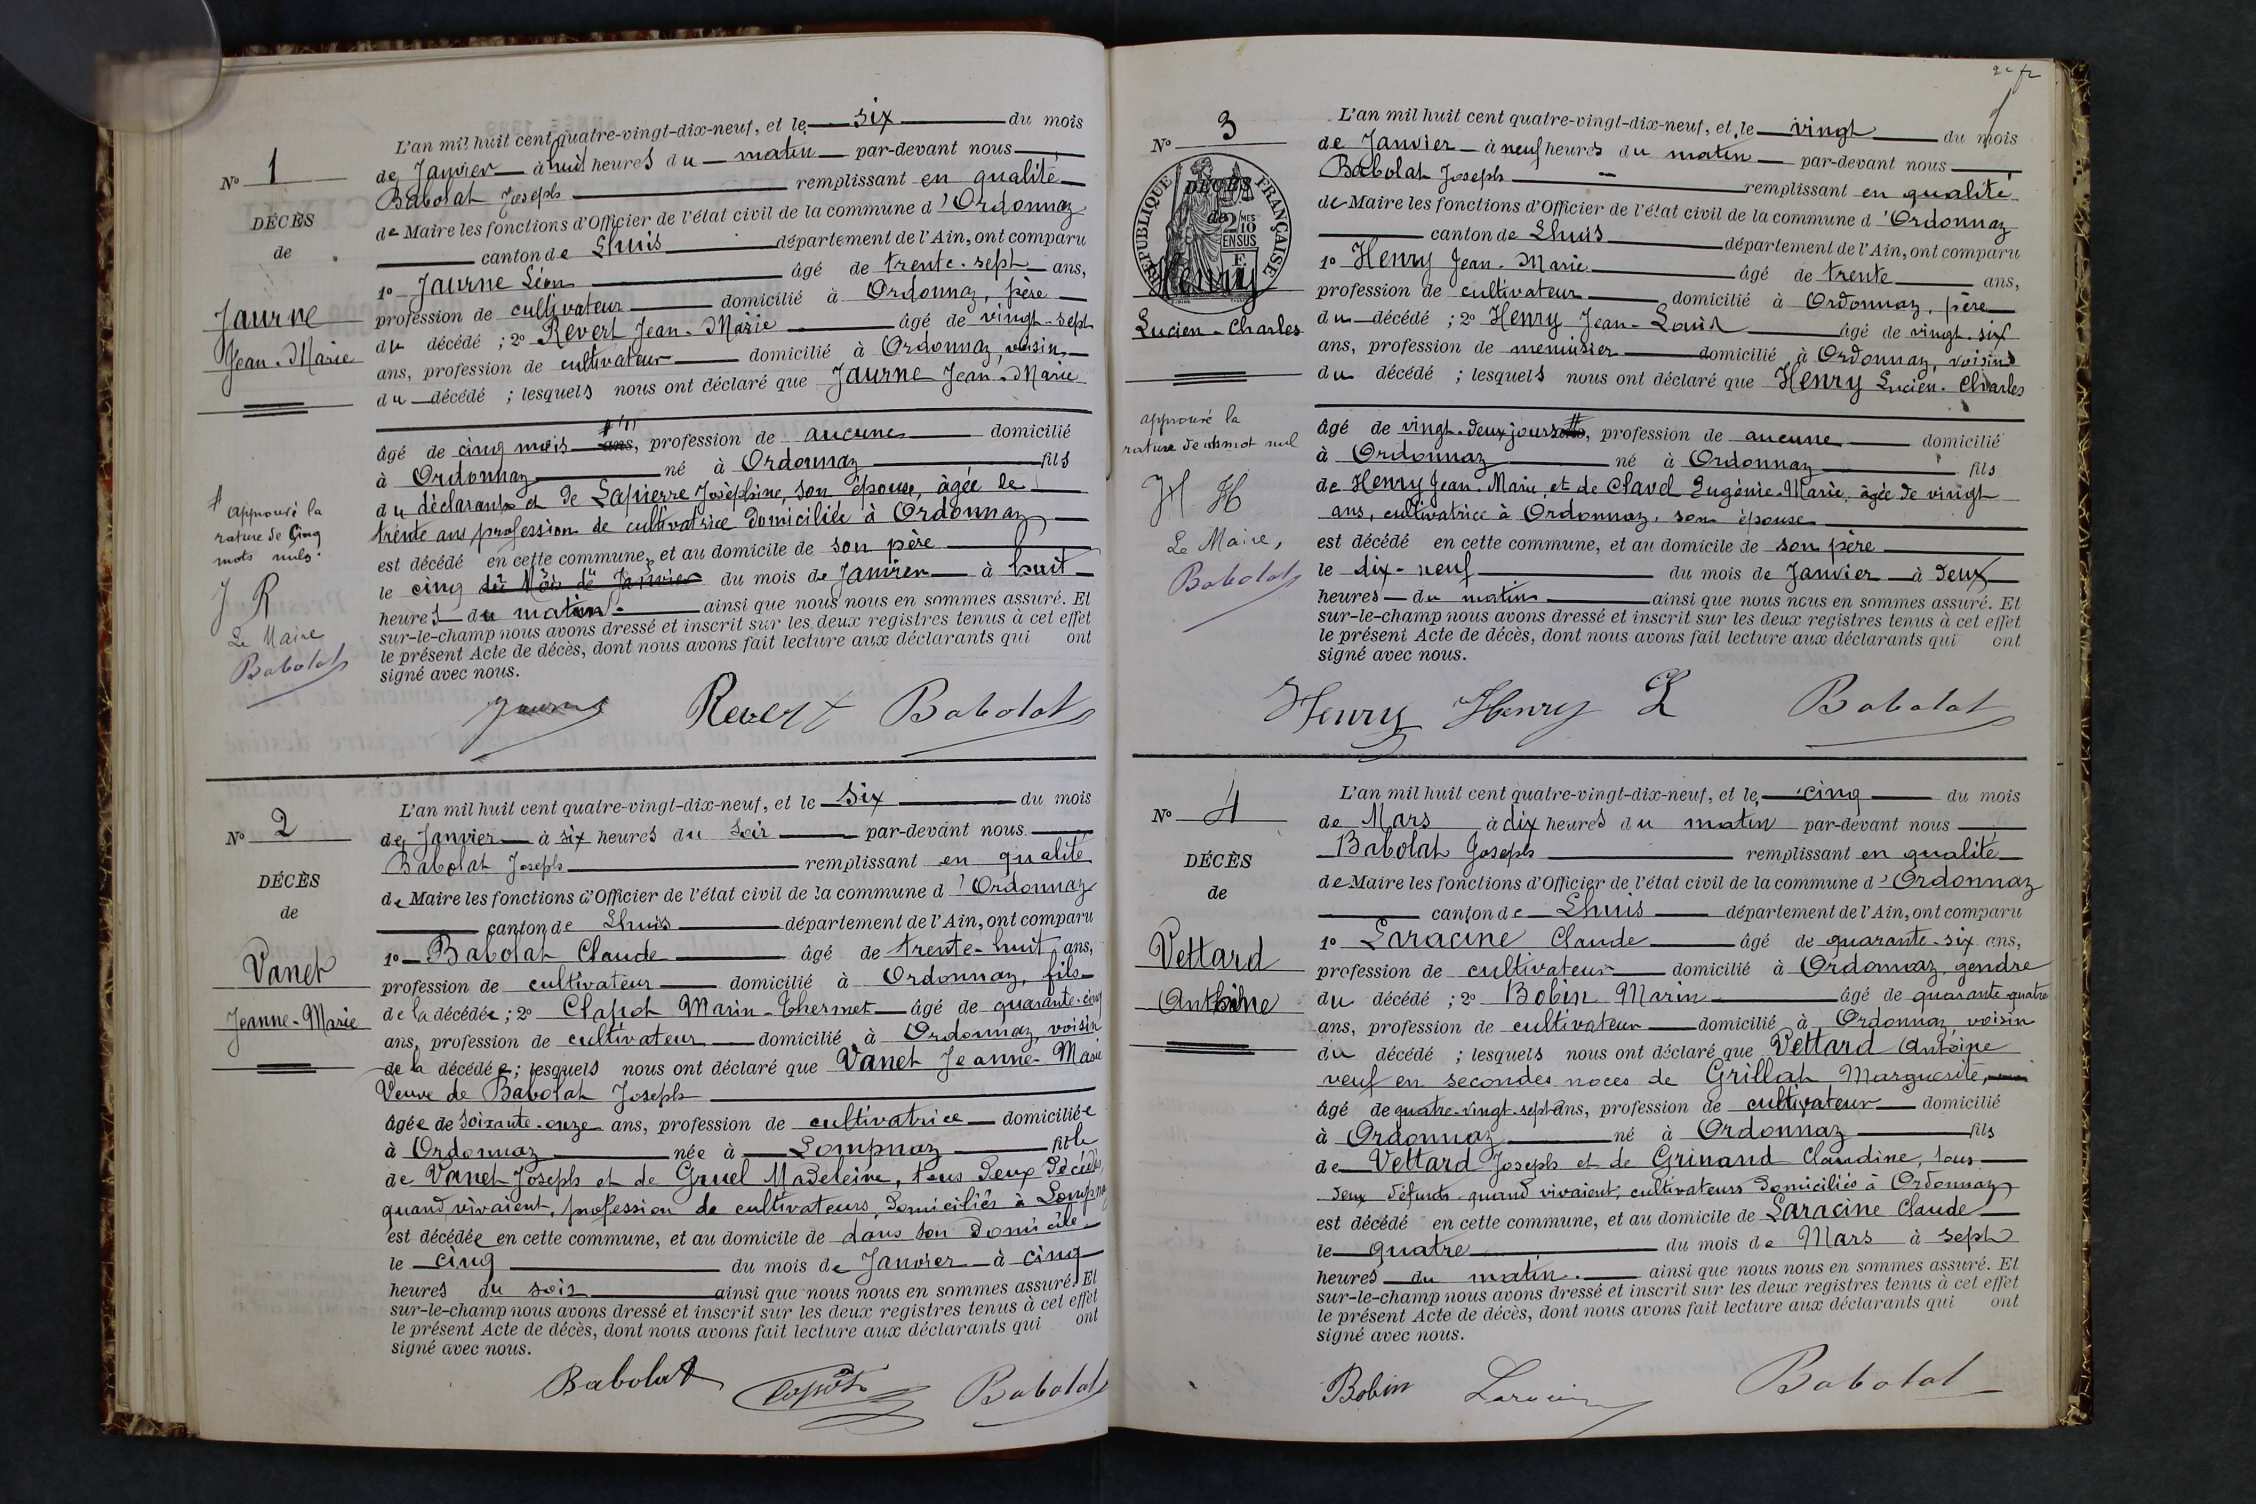 N° 1
DÉCÈS
de
Jaurne
Jean-Marie
# approuvé la
rature de cinq
mots nuls.
J R
Le Maire
Babolat
L'an mil huit cent quatre-vingt-dix-neuf, et le six du mois
de Janvier à huit heures du matin par-devant nous
Babolat Joseph remplissant en qualité
de Maire les fonctions d'Officier de l'état civil de la commune d'Ordonnaz
canton de Lhuis département de l'Ain, ont comparu
1° Jaurne Léon âgé de trente-sept ans,
profession de cultivateur domicilié à Ordonnaz, père
du décédé ; 2° Revert Jean-Marie âgé de vingt-sept
ans, profession de cultivateur domicilié à Ordonnaz, voisin
du décédé ; lesquels nous ont déclaré que Jaurne Jean-Marie
âgé de cinq mois ans, profession de aucune domicilié
à Ordonnaz né à Ordonnaz fils
du déclarant et de Lapierre Josèphine, son épouse, âgée de
trente ans profession de cultivatrice domiciliée à Ordonnaz
est décédé en cette commune, et au domicile de son père
le cinq du Mois de Janvier du mois de Janvier à huit
heures du matin ainsi que nous nous en sommes assuré. Et
sur-le-champ nous avons dressé et inscrit sur les deux registres tenus à cet effet
le présent Acte de décès, dont nous avons fait lecture aux déclarants qui ont
signé avec nous.
Jaurne Revert Babolat
N° 2
DÉCÈS
de
Vanet
Jeanne-Marie
L'an mil huit cent quatre-vingt-dix-neuf, et le six du mois
de Janvier à six heures du soir par-devant nous
Babolat Joseph remplissant en qualité
de Maire les fonctions d'Officier de l'état civil de la commune d'Ordonnaz
canton de Lhuis département de l'Ain, ont comparu
1° Babolat Claude âgé de trente-huit ans,
profession de cultivateur domicilié à Ordonnaz, fils
de la décédée ; 2° Chapot Marin-Thermet âgé de quarante-cinq
ans, profession de cultivateur domicilié à Ordonnaz, voisin
de la décédée ; lesquels nous ont déclaré que Vanet Jeanne-Marie
Veuve de Babolat Joseph
âgée de soixante-onze ans, profession de cultivatrice domiciliée
à Ordonnaz née à Lompnaz fille
de Vanet Joseph et de Gruel Madeleine, tous deux décédés
quand vivaient, profession de cultivateurs, domiciliés à Lompnaz
est décédée en cette commune, et au domicile de dans son domicile
le cinq du mois de Janvier à cinq
heures du soir ainsi que nous nous en sommes assuré. Et
sur-le-champ nous avons dressé et inscrit sur les deux registres tenus à cet effet
le présent Acte de décès, dont nous avons fait lecture aux déclarants qui ont
signé avec nous.
Babolat Babolat
N° 3
RÉPUBLIQUE FRANÇAISE
DÉCÈS
de
Henry
Lucien-Charles
approuvé la
rature de un mot nul
H H
Le Maire,
Babolat
L'an mil huit cent quatre-vingt-dix-neuf, et le vingt du mois
de Janvier à neuf heures du matin par-devant nous
Babolat Joseph remplissant en qualité
de Maire les fonctions d'Officier de l'état civil de la commune d'Ordonnaz
canton de Lhuis département de l'Ain, ont comparu
1° Henry Jean-Marie âgé de trente ans,
profession de cultivateur domicilié à Ordonnaz, père
du décédé ; 2° Henry Jean-Louis âgé de vingt-six
ans, profession de menuisier domicilié à Ordonnaz, voisins
du décédé ; lesquels nous ont déclaré que Henry Lucien-Charles
âgé de vingt-deux jours ans, profession de aucune domicilié
à Ordonnaz né à Ordonnaz fils
de Henry Jean-Marie, et de Clavel Eugénie-Marie, âgée de vingt
ans, cultivatrice à Ordonnaz, son épouse
est décédé en cette commune, et au domicile de son père
le dix-neuf du mois de Janvier à deux
heures du matin ainsi que nous nous en sommes assuré. Et
sur-le-champ nous avons dressé et inscrit sur les deux registres tenus à cet effet
le présent Acte de décès, dont nous avons fait lecture aux déclarants qui ont
signé avec nous.
Henry Henry L Babolat
N° 4
DÉCÈS
de
Vettard
Antoine
L'an mil huit cent quatre-vingt-dix-neuf, et le cinq du mois
de Mars à dix heures du matin par-devant nous
Babolat Joseph remplissant en qualité
de Maire les fonctions d'Officier de l'état civil de la commune d'Ordonnaz
canton de Lhuis département de l'Ain, ont comparu
1° Laracine Claude âgé de quarante-six ans,
profession de cultivateur domicilié à Ordonnaz, gendre
du décédé ; 2° Bobin Marin âgé de quarante-quatre
ans, profession de cultivateur domicilié à Ordonnaz, voisin
du décédé ; lesquels nous ont déclaré que Vettard Antoine
veuf en secondes noces de Grillat Marguerite,
âgé de quatre-vingt-sept ans, profession de cultivateur domicilié
à Ordonnaz né à Ordonnaz fils
de Vettard Joseph et de Grinand Claudine, tous
deux défunts quand vivaient, cultivateurs domiciliés à Ordonnaz
est décédé en cette commune, et au domicile de Laracine Claude
le quatre du mois de Mars à sept
heures du matin ainsi que nous nous en sommes assuré. Et
sur-le-champ nous avons dressé et inscrit sur les deux registres tenus à cet effet
le présent Acte de décès, dont nous avons fait lecture aux déclarants qui ont
signé avec nous.
Bobin Laracine Babolat